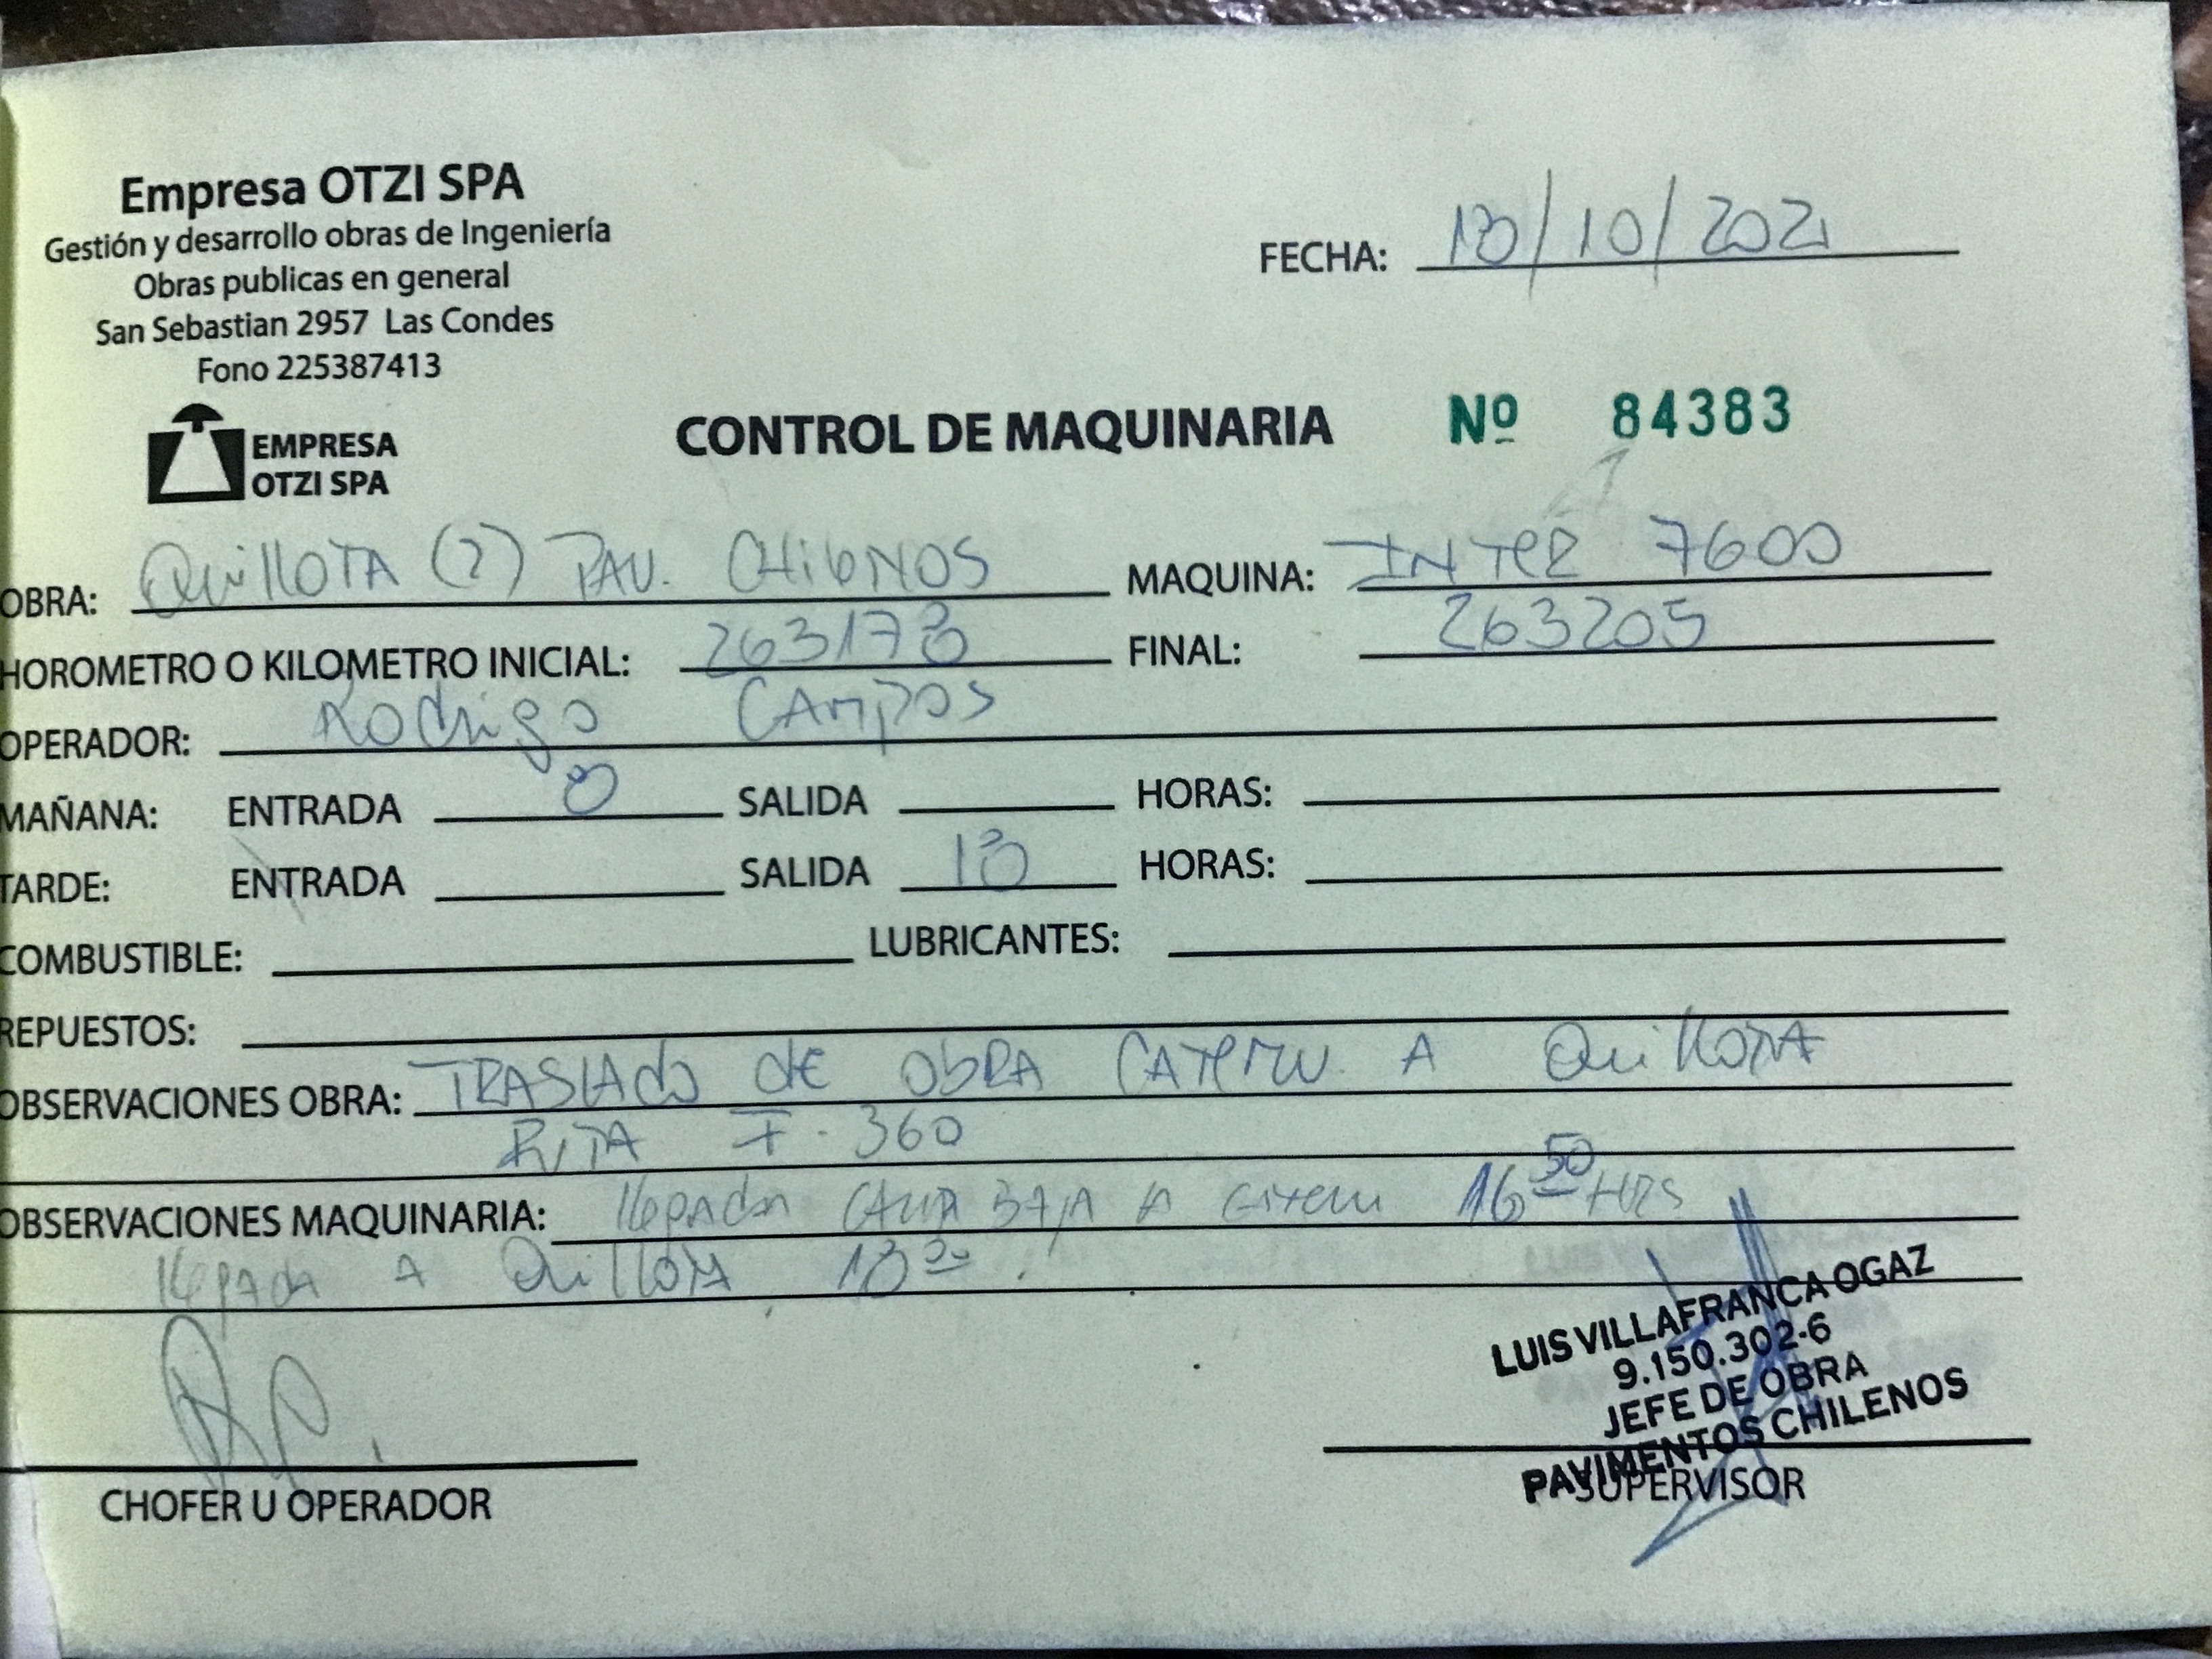 Empresa OTZI SPA
Gestión y desarrollo obras de Ingeniería
Obras publicas en general
San Sebastian 2957 Las Condes
Fono 225387413
EMPRESA
OTZI SPA
FECHA: 18/10/2021
CONTROL DE MAQUINARIA Nº 84383
OBRA: Quillota (2) PAV. CHilENOS MAQUINA: INTER 7600
HOROMETRO O KILOMETRO INICIAL: 263178 FINAL: 263205
OPERADOR: Rodrigo CAMPOS
MAÑANA: ENTRADA 8 SALIDA HORAS:
TARDE: ENTRADA SALIDA 18 HORAS:
COMBUSTIBLE: LUBRICANTES:
REPUESTOS:
OBSERVACIONES OBRA: TRASLAdo de ObRA CATEMU. A QuillOTA
RUTA F-360
OBSERVACIONES MAQUINARIA: llegada CAMA BAJA A 16 50 HRS
llegada A QuillOTA 18
LUIS VILLAFRANCA OGAZ
9.150.302-6
JEFE DE OBRA
PAVIMENTOS CHILENOS
CHOFER U OPERADOR SUPERVISOR